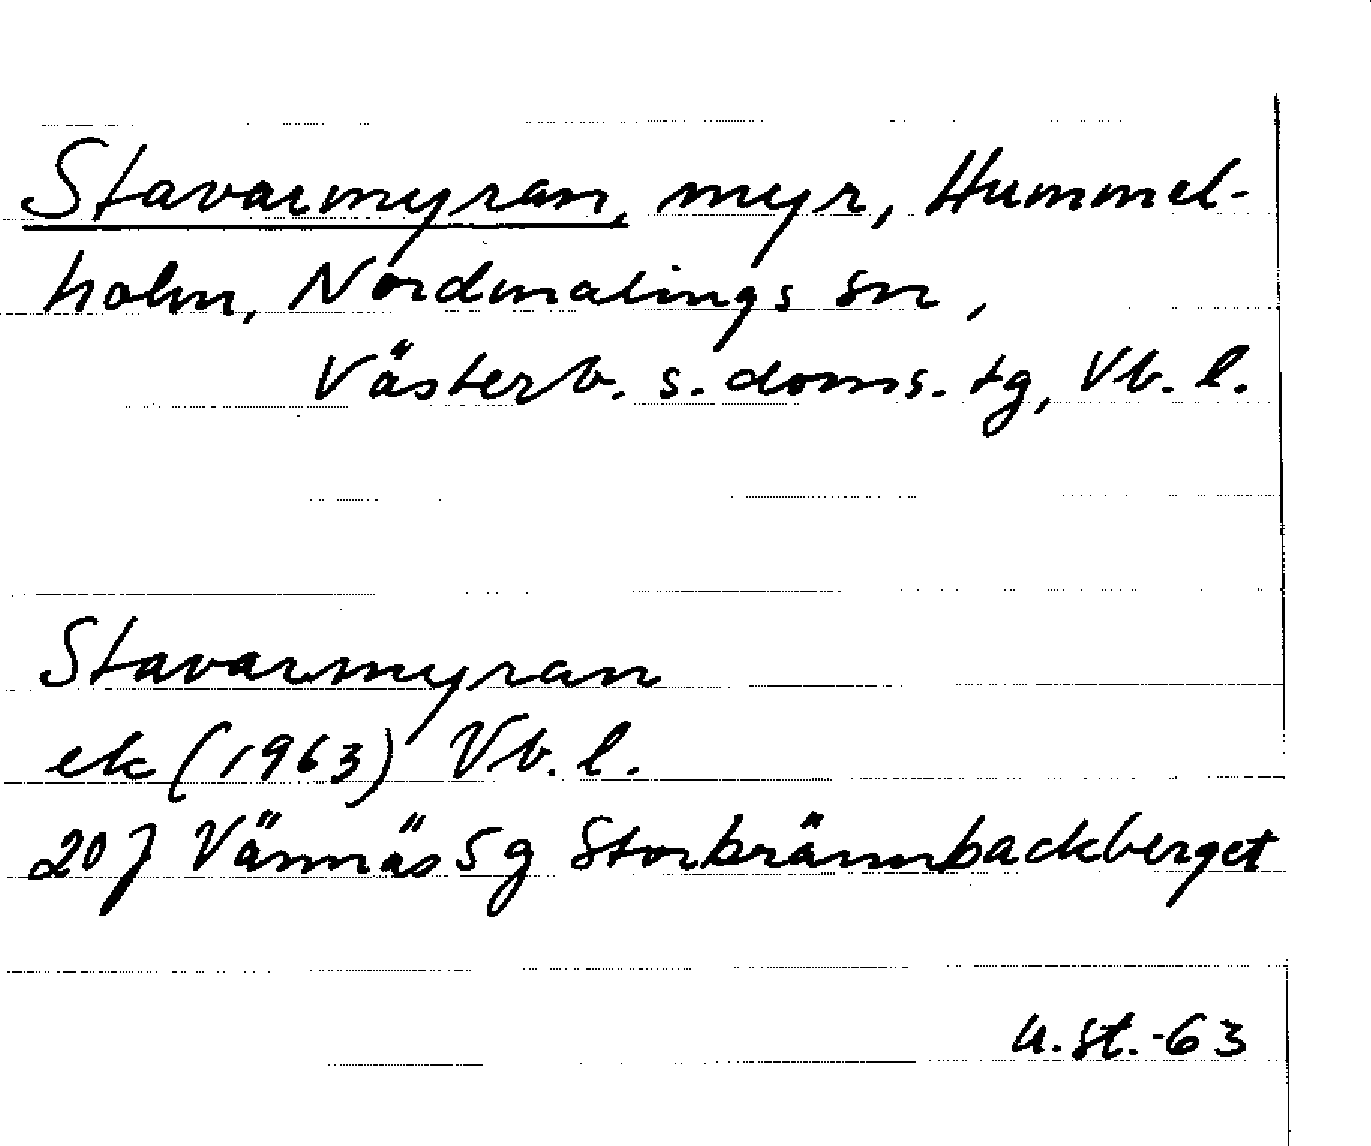 Stavarmyran, myr, Hummel-
holm, Nordmalings sn,
Västerb. s. doms. tg, Vb. l.
Stavarmyran
ek (1963) Vb. l.
20 J Vännäs 5 g Storbrännbackberget
U.St.-63